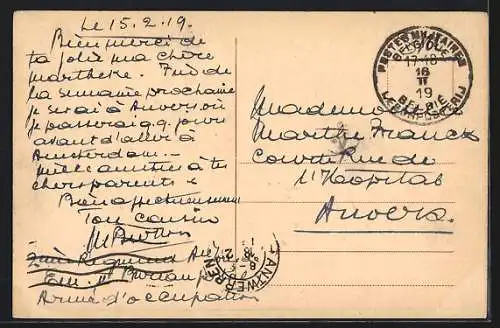 Le 15.2.19.
Bien merci de
ta jolie ma chère
Martheke. Fin de
la semaine prochaine
je serai à Anvers où
je passerai q.q. jours
avant d'aller à
Amsterdam.—
Mille amitiés à tes
chers parents &
Bien affectueusement
Ton cousin
Armée d'occupation
POSTES MILITAIRES
BELGIQUE
17-18
16
II
19
BELGIË
LEGERPOSTERIJ
Mademoiselle
Marthe Franck
Courte Rue de
l'Hopital
Anvers.
ANTWERPEN